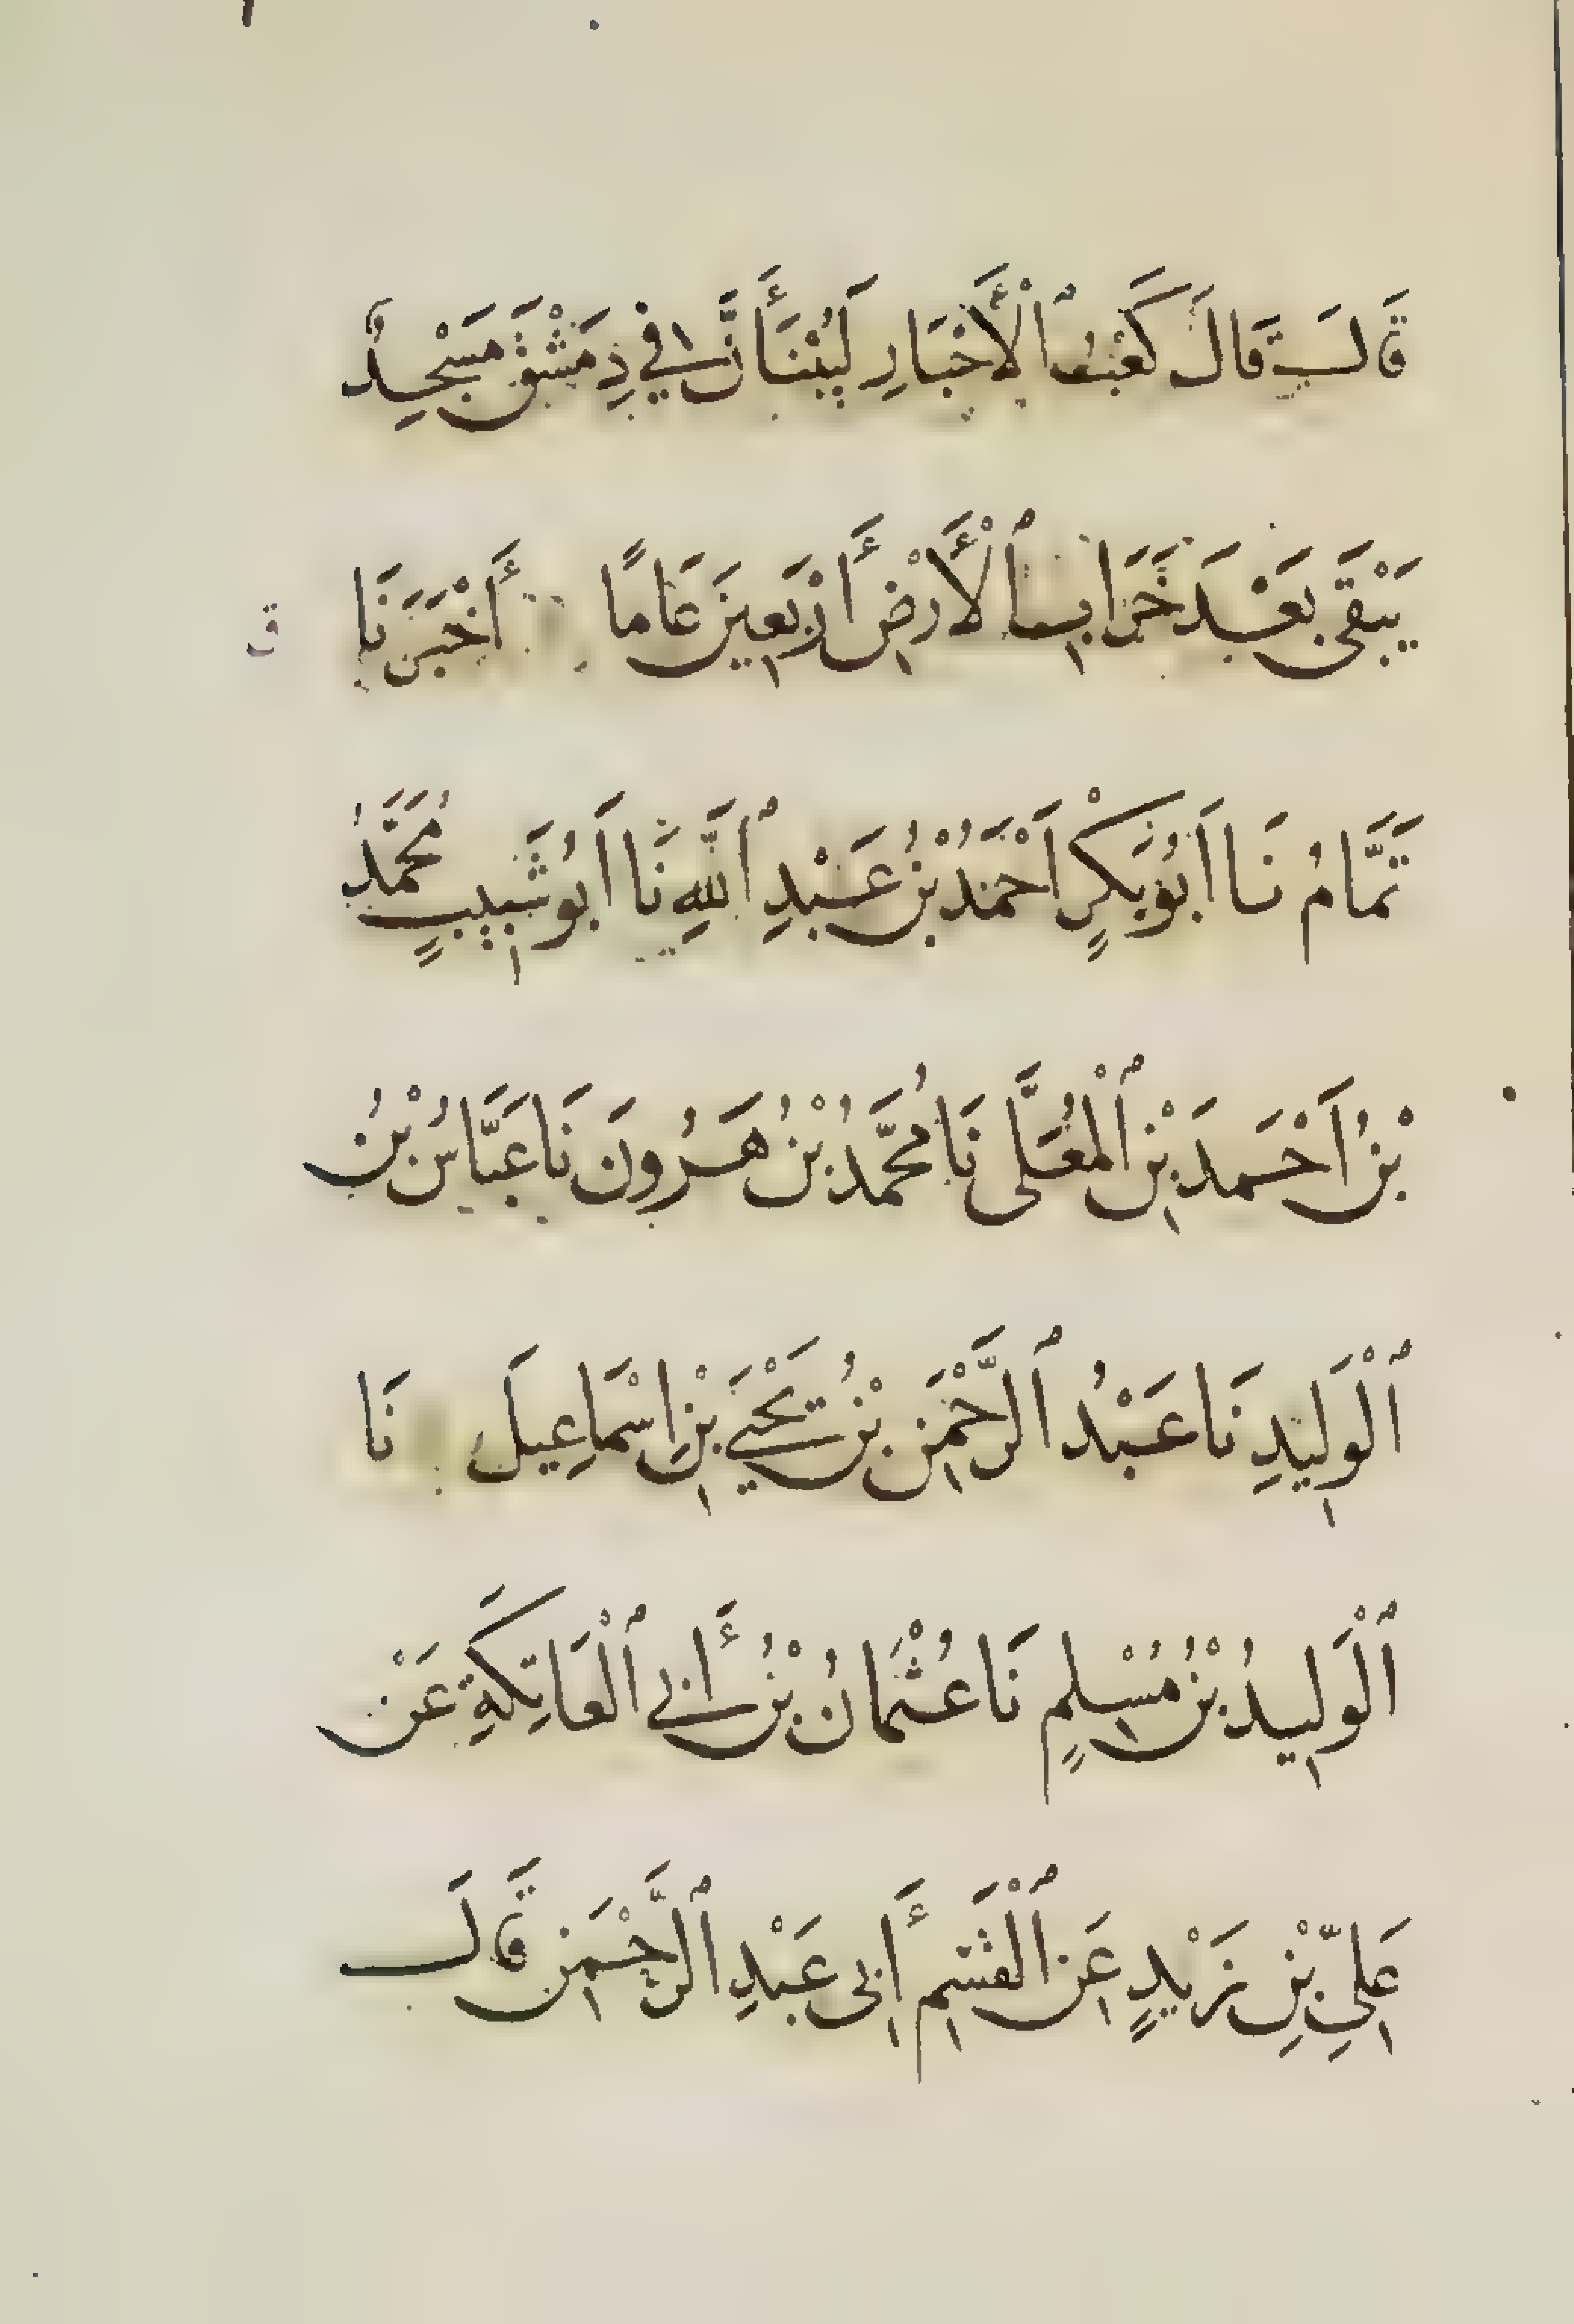 قَالَ قَالَ كَعْبُ ٱلْأَحْبَارِ لَيُبْنَأَنَّ فِي دِمَشْقَ مَسْجِدٌ
يَبْقَى بَعْدَ خَرَابِ ٱلْأَرْضِ أَرْبَعِينَ عَامًا أَخْبَرَنَا
تَمَّامُ نَا اَبُو بَكْرٍ اَحْمَدُ بْنُ عَبْدِ ٱللَّهِ نَا اَبُو شَبِيبٍ مُحَمَّدُ
بْنُ اَحْمَدَ بْنِ ٱلْمُعَلَّى نَا مُحَمَّدُ بْنُ هَرُونَ نَا عَبَّاسُ بْنُ
ٱلْوَلِيدِ نَا عَبْدُ ٱلرَّحْمَنِ بْنُ يَحْيَى بْنِ اِسْمَاعِيلَ نَا
ٱلْوَلِيدُ بْنُ مُسْلِمٍ نَا عُثْمَانُ بْنُ أَبِي ٱلْعَاتِكَةِ عَنْ
عَلِيِّ بْنِ زَيْدٍ عَنِ ٱلْقَسِمِ أَبِي عَبْدِ ٱلرَّحْمَنِ قَالَ